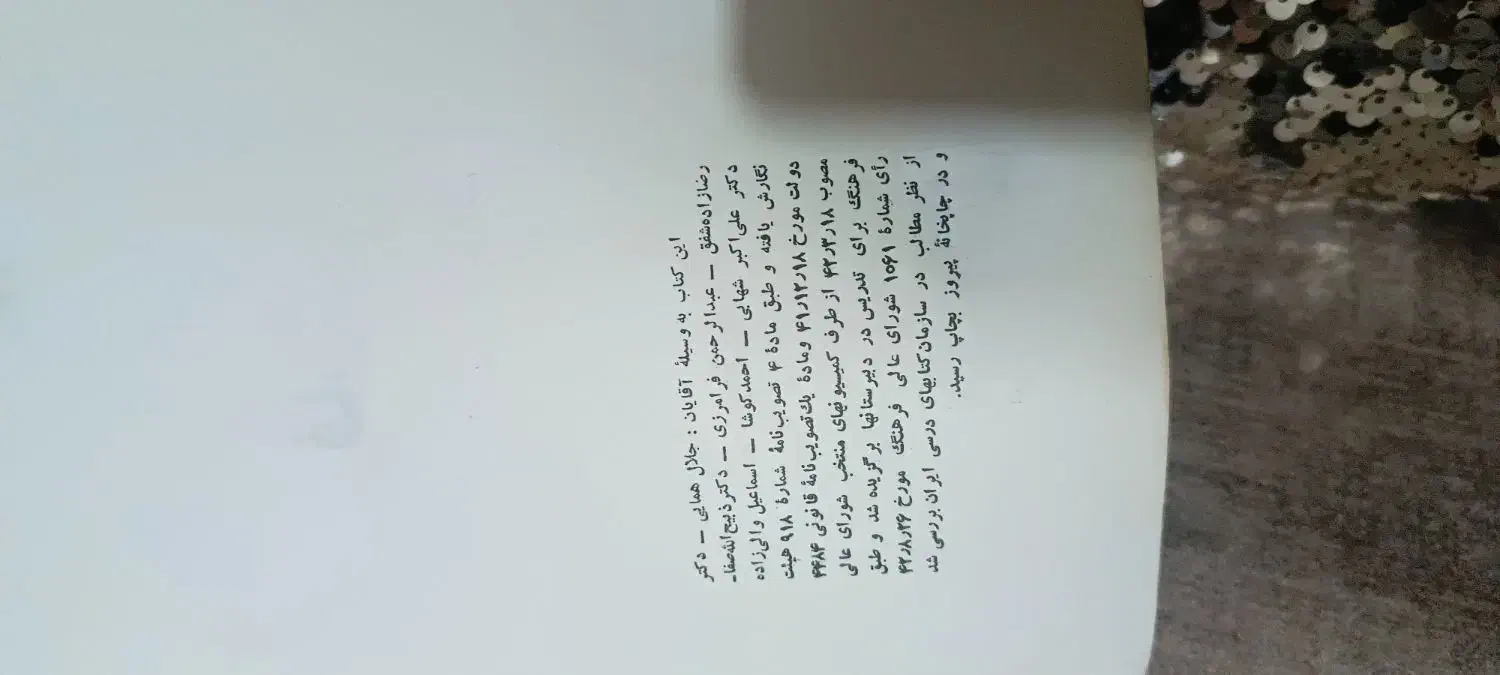 این کتاب به وسیلهٔ آقایان : جلال همایی – دکتر
رضازاده‌شفق – عبدالرحمن فرامرزی – دکتر ذبیح‌الله‌صفا–
دکتر علی‌اکبر شهابی – احمد کوشا – اسماعیل والی‌زاده
نگارش یافته و طبق مادهٔ ۴ تصویب‌نامهٔ شمارهٔ ۹۱۸ هیئت
دولت مورخ ۱۸ر۱۲ر۴۱ و مادهٔ یك تصویب‌نامهٔ قانونی ۴۴۸۴
مصوب ۱۸ر۳ر۴۲ از طرف کمیسیونهای منتخب شورای عالی
فرهنگ برای تدریس در دبیرستانها برگزیده شد و طبق
رأی شمارهٔ ۱۵۶۱ شورای عالی فرهنگ مورخ ۲۶ر۸ر۴۲
از نظر مطالب در سازمان کتابهای درسی ایران بررسی شد
و در چاپخانهٔ پیروز بچاپ رسید.